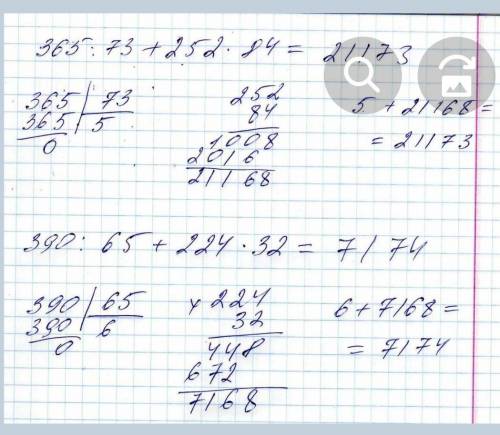 365 : 73 + 252 · 84 = 21173
365 | 73
365 5
0
252
84
1008
2016
21168
5 + 21168 =
= 21173
390 : 65 + 224 · 32 = 7174
390 | 65
390 6
0
× 224
32
448
672
7168
6 + 7168 =
= 7174